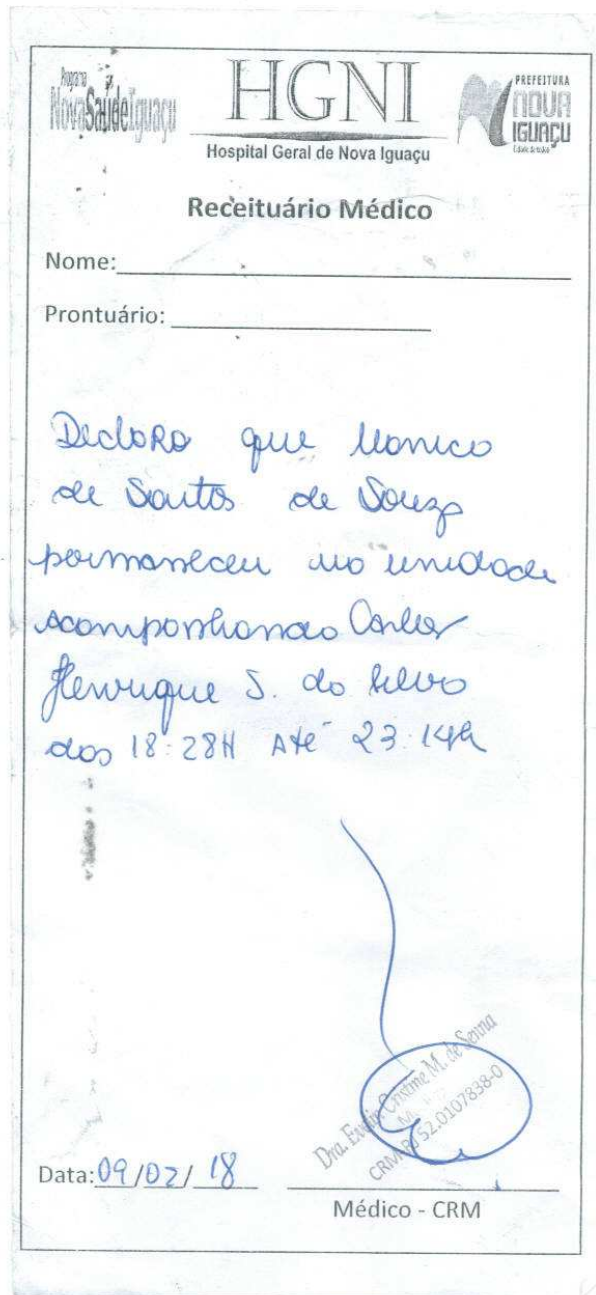 Programa
NovaSaúdeIguaçu
HGNI
Hospital Geral de Nova Iguaçu
PREFEITURA
NOVA
IGUAÇU
Receituário Médico
Nome:
Prontuário:
Declaro que Monica
de Santos de Souza
permaneceu na unidade
acompanhando Carlos
Henrique S. da Silva
das 18:28H Até 23:14h
Dra. Cristine M. de Senna
CRM-RJ 52.0107838-0
Data: 09/02/18
Médico - CRM